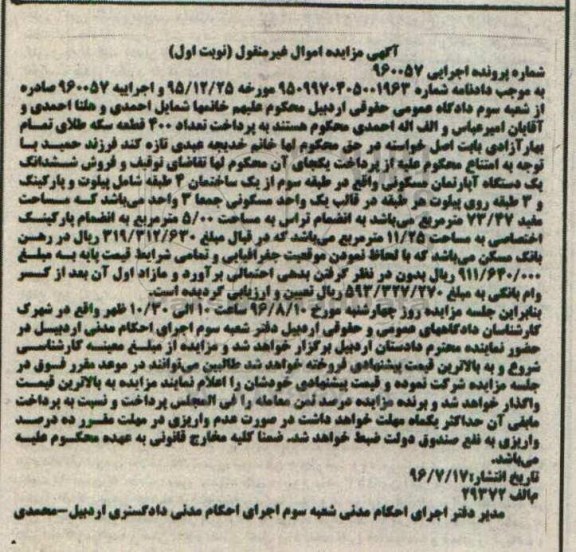 آگهی مزایده اموال غیرمنقول (نوبت اول)
شماره پرونده اجرایی ۹۶۰۰۵۷
به موجب دادنامه شماره ۹۵۰۹۹۷۰۳۰۵۰۰۱۹۶۳ مورخه ۹۵/۱۲/۲۵ و اجراییه ۹۶۰۰۵۷ صادره
از شعبه سوم دادگاه عمومی حقوقی اردبیل محکوم علیهم خانمها شمایل احمدی و هلنا احمدی و
آقایان امیرعباس و الف اله احمدی محکوم هستند به پرداخت تعداد ۴۰۰ قطعه سکه طلای تمام
بهار آزادی بابت اصل خواسته در حق محکوم لها خانم خدیجه عبدی تازه کند فرزند حمید با
توجه به امتناع محکوم علیه از پرداخت یکجای آن محکوم لها تقاضای توقیف و فروش ششدانگ
یک دستگاه آپارتمان مسکونی واقع در طبقه سوم از یک ساختمان ۴ طبقه شامل پیلوت و پارکینگ
و ۳ طبقه روی پیلوت هر طبقه در قالب یک واحد مسکونی جمعا ۳ واحد می‌باشد که مساحت
مفید ۷۳/۴۷ مترمربع می‌باشد به انضمام تراس به مساحت ۵/۰۰ مترمربع به انضمام پارکینگ
اختصاصی به مساحت ۱۱/۲۵ مترمربع می‌باشد که در قبال مبلغ ۳۱۹/۳۱۲/۶۳۰ ریال در رهن
بانک مسکن می‌باشد که با لحاظ نمودن موقعیت جغرافیایی و تمامی شرایط قیمت پایه به مبلغ
۹۱۱/۶۴۰/۰۰۰ ریال بدون در نظر گرفتن بدهی احتمالی برآورد و مازاد اول آن بعد از کسر
وام بانکی به مبلغ ۵۹۳/۳۲۷/۲۷۰ ریال تعیین و ارزیابی گردیده است.
بنابراین جلسه مزایده روز چهارشنبه مورخ ۹۶/۸/۱۰ ساعت ۱۰ الی ۱۰/۳۰ ظهر واقع در شهرک
کارشناسان دادگاههای عمومی و حقوقی اردبیل دفتر شعبه سوم اجرای احکام مدنی اردبیل در
حضور نماینده محترم دادستان اردبیل برگزار خواهد شد و مزایده از مبلغ معینه کارشناسی
شروع و به بالاترین قیمت پیشنهادی فروخته خواهد شد طالبین می‌توانند در موعد مقرر فوق در
جلسه مزایده شرکت نموده و قیمت پیشنهادی خودشان را اعلام نمایند مزایده به بالاترین قیمت
واگذار خواهد شد و برنده مزایده ده درصد ثمن معامله را فی المجلس پرداخت و نسبت به پرداخت
مابقی آن حداکثر یکماه مهلت خواهد داشت در صورت عدم واریزی در مهلت مقرر ده درصد
واریزی به نفع صندوق دولت ضبط خواهد شد. ضمنا کلیه مخارج قانونی به عهده محکوم علیه
می‌باشد.
تاریخ انتشار: ۹۶/۷/۱۷
م‌الف ۲۹۳۷۲
مدیر دفتر اجرای احکام مدنی شعبه سوم اجرای احکام مدنی دادگستری اردبیل-محمدی